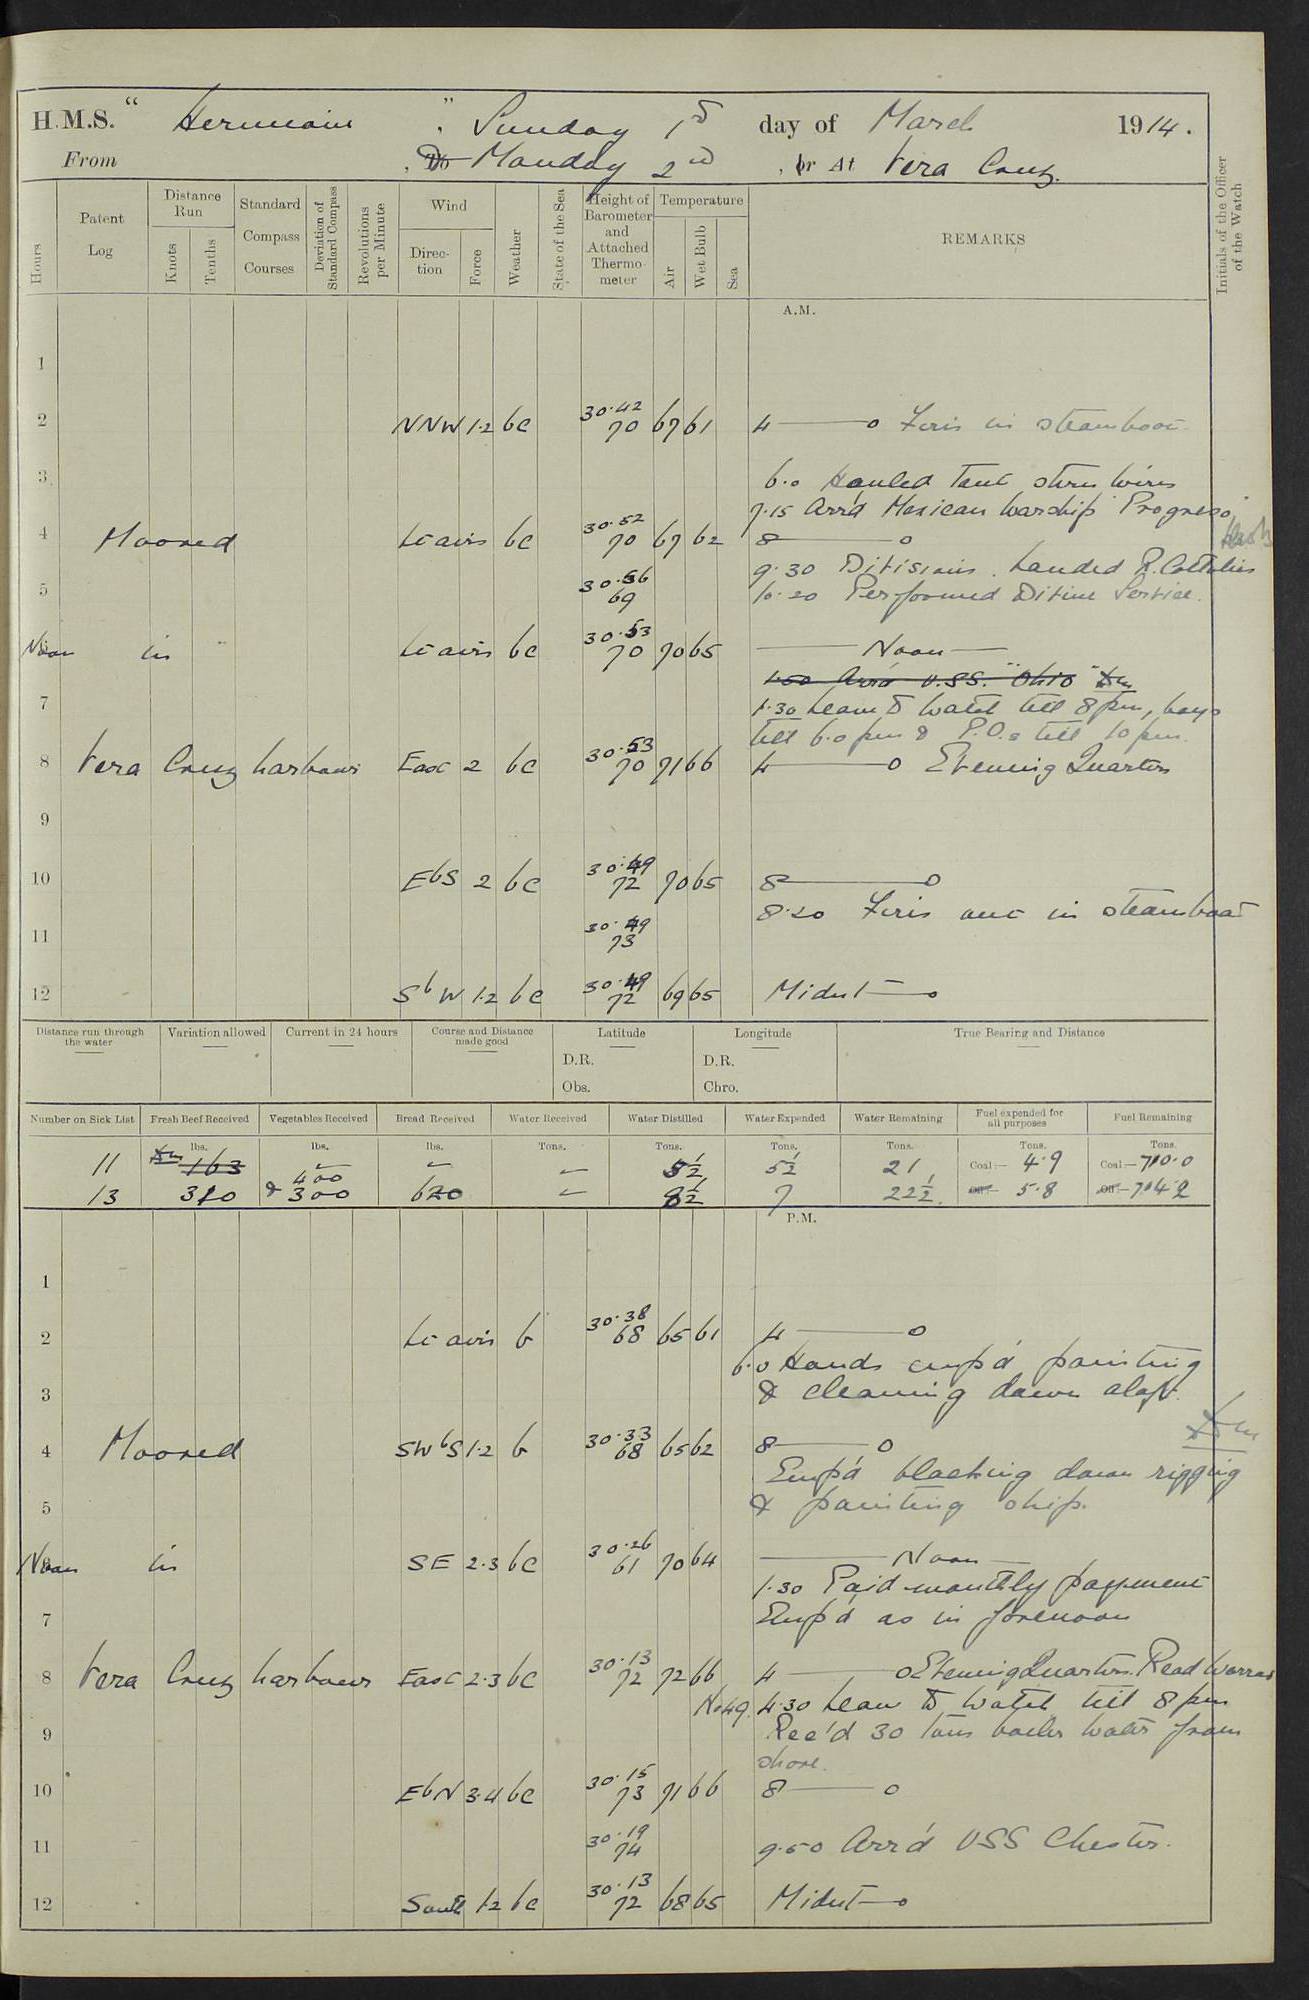 H.M.S. "Hermione", Sunday 1st day of March 1914.
From , To Monday 2nd , or At Vera Cruz.
Hours
Patent Log
Distance Run
Knots
Tenths
Standard Compass Courses
Deviation of Standard Compass
Revolutions per Minute
Wind
Direction
Force
Weather
State of the Sea
Height of Barometer and Attached Thermometer
Temperature
Air
Wet Bulb
Sea
REMARKS
Initials of the Officer of the Watch
A.M.
1
2 NNW 1.2 bc 30.42 70 67 61 4 —— o Fires in steamboat
3 6.0 Hauled taut stern wires
7.15 Arr'd Mexican Warship "Progreso"
4 Moored Lt airs bc 30.52 70 67 62 8 —— o
9.30 Divisions. Landed R. Catholics
5 30.56 69 10.20 Performed Divine Service.
Noon in Lt airs bc 30.53 70 70 65 —— Noon ——
1.50 Arr'd U.S.S. "Ohio"
7 1.30 Leave to Watch till 8 pm, boys
till 6.0 pm & P.O.s till 10 pm.
8 Vera Cruz harbour East 2 bc 30.53 70 71 66 4 —— o Evening Quarters
9
10 EbS 2 bc 30.49 72 70 65 8 —— o
8.20 Fires out in steamboat
11 30.49 73
12 SbW 1.2 bc 30.49 72 69 65 Midnt —— o
Distance run through the water
Variation allowed
Current in 24 hours
Course and Distance made good
Latitude
D.R.
Obs.
Longitude
D.R.
Chro.
True Bearing and Distance
Number on Sick List
Fresh Beef Received
Vegetables Received
Bread Received
Water Received
Water Distilled
Water Expended
Water Remaining
Fuel expended for all purposes
Fuel Remaining
lbs. lbs. lbs. Tons. Tons. Tons. Tons. Tons. Tons.
11 163 — — — 5½ 5½ 21 Coal:— 4.9 Coal:— 710.0
13 310 400 & 300 620 — 8½ 7 22½ Oil:— 5.8 Oil:— 704.2
P.M.
1
2 Lt airs b 30.38 68 65 61 4 —— o
6.0 Hands emp'd painting
3 & cleaning down aloft.
4 Moored SWbS 1.2 b 30.33 68 65 62 8 —— o
Emp'd blacking down rigging
5 & painting ship.
Noon in SE 2.3 bc 30.26 61 70 64 —— Noon ——
1.30 Paid monthly payment
7 Emp'd as in forenoon
8 Vera Cruz harbour East 2.3 bc 30.13 72 72 66 4 —— o Evening Quarters. Read Warrant
No 49. 4.30 Leave to Watch till 8 pm
9 Rec'd 30 tons boiler water from
shore.
10 EbN 3.4 bc 30.15 73 71 66 8 —— o
11 30.19 74 9.50 Arr'd USS Chester.
12 South 1.2 bc 30.13 72 68 65 Midnt —— o